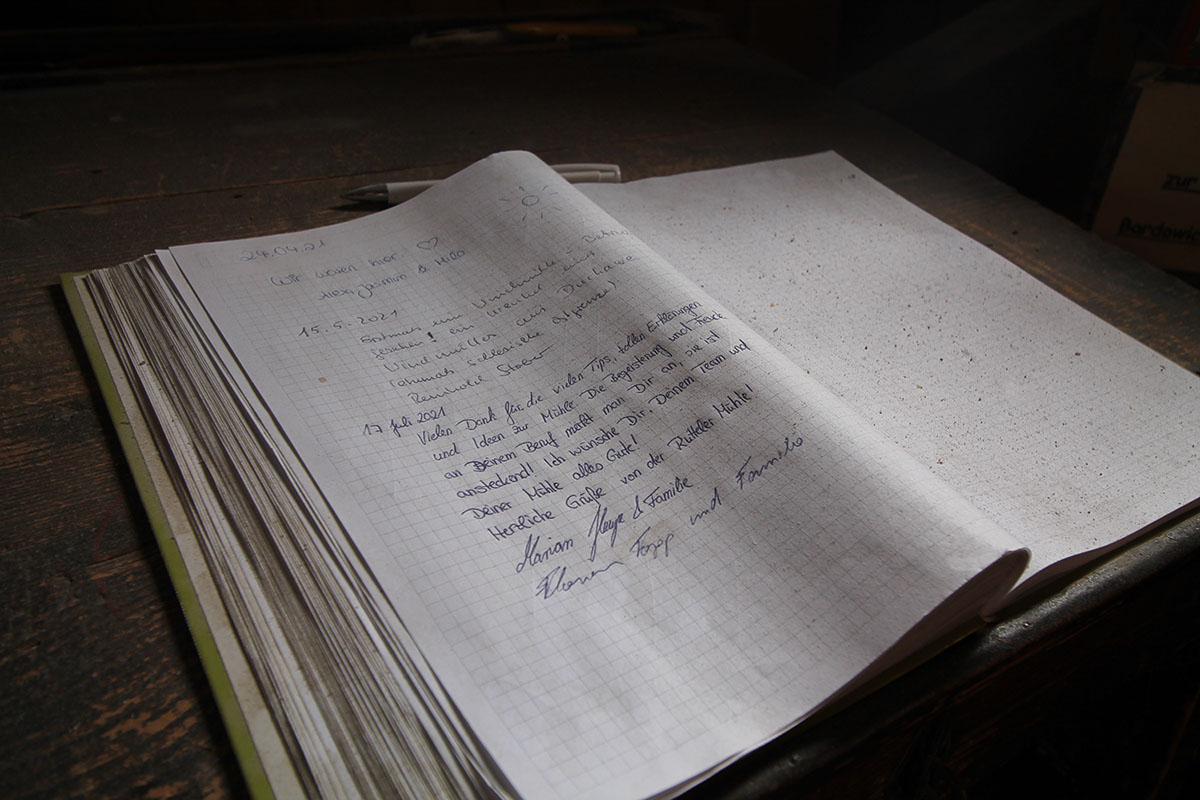 24.04.21
Wir waren hier! ♡
Alex, Jasmin & Milo
15.5.2021
Erstmals eine Windmühle in
gesehen! ein
Windmüller aus
(ehemals schlesische Ostgrenze)
Reinhold
17 Juli 2021
Vielen Dank für die vielen Tips, tollen Erklärungen
und Ideen zur Mühle. Die Begeisterung und Freude
an Deinem Beruf merkt man Dir an, die ist
ansteckend! Ich wünsche Dir, Deinem Team und
Deiner Mühle alles Gute!
Herzliche Grüße von der Rütteler Mühle!
Marian & Familie
und Familie
zur
Bardowick